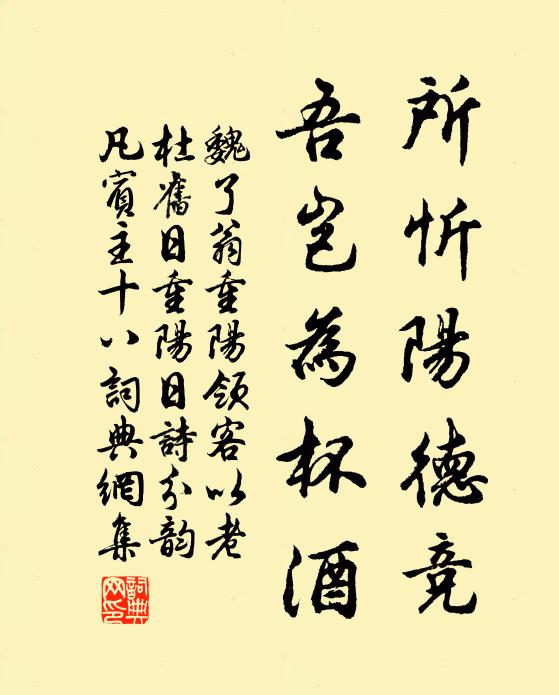 所忻陽德竞
吾岂為杯酒
魏了翁重陽領客以老
杜舊日重陽日詩分韵
凡賓主十八詞典網集
詞典
网印